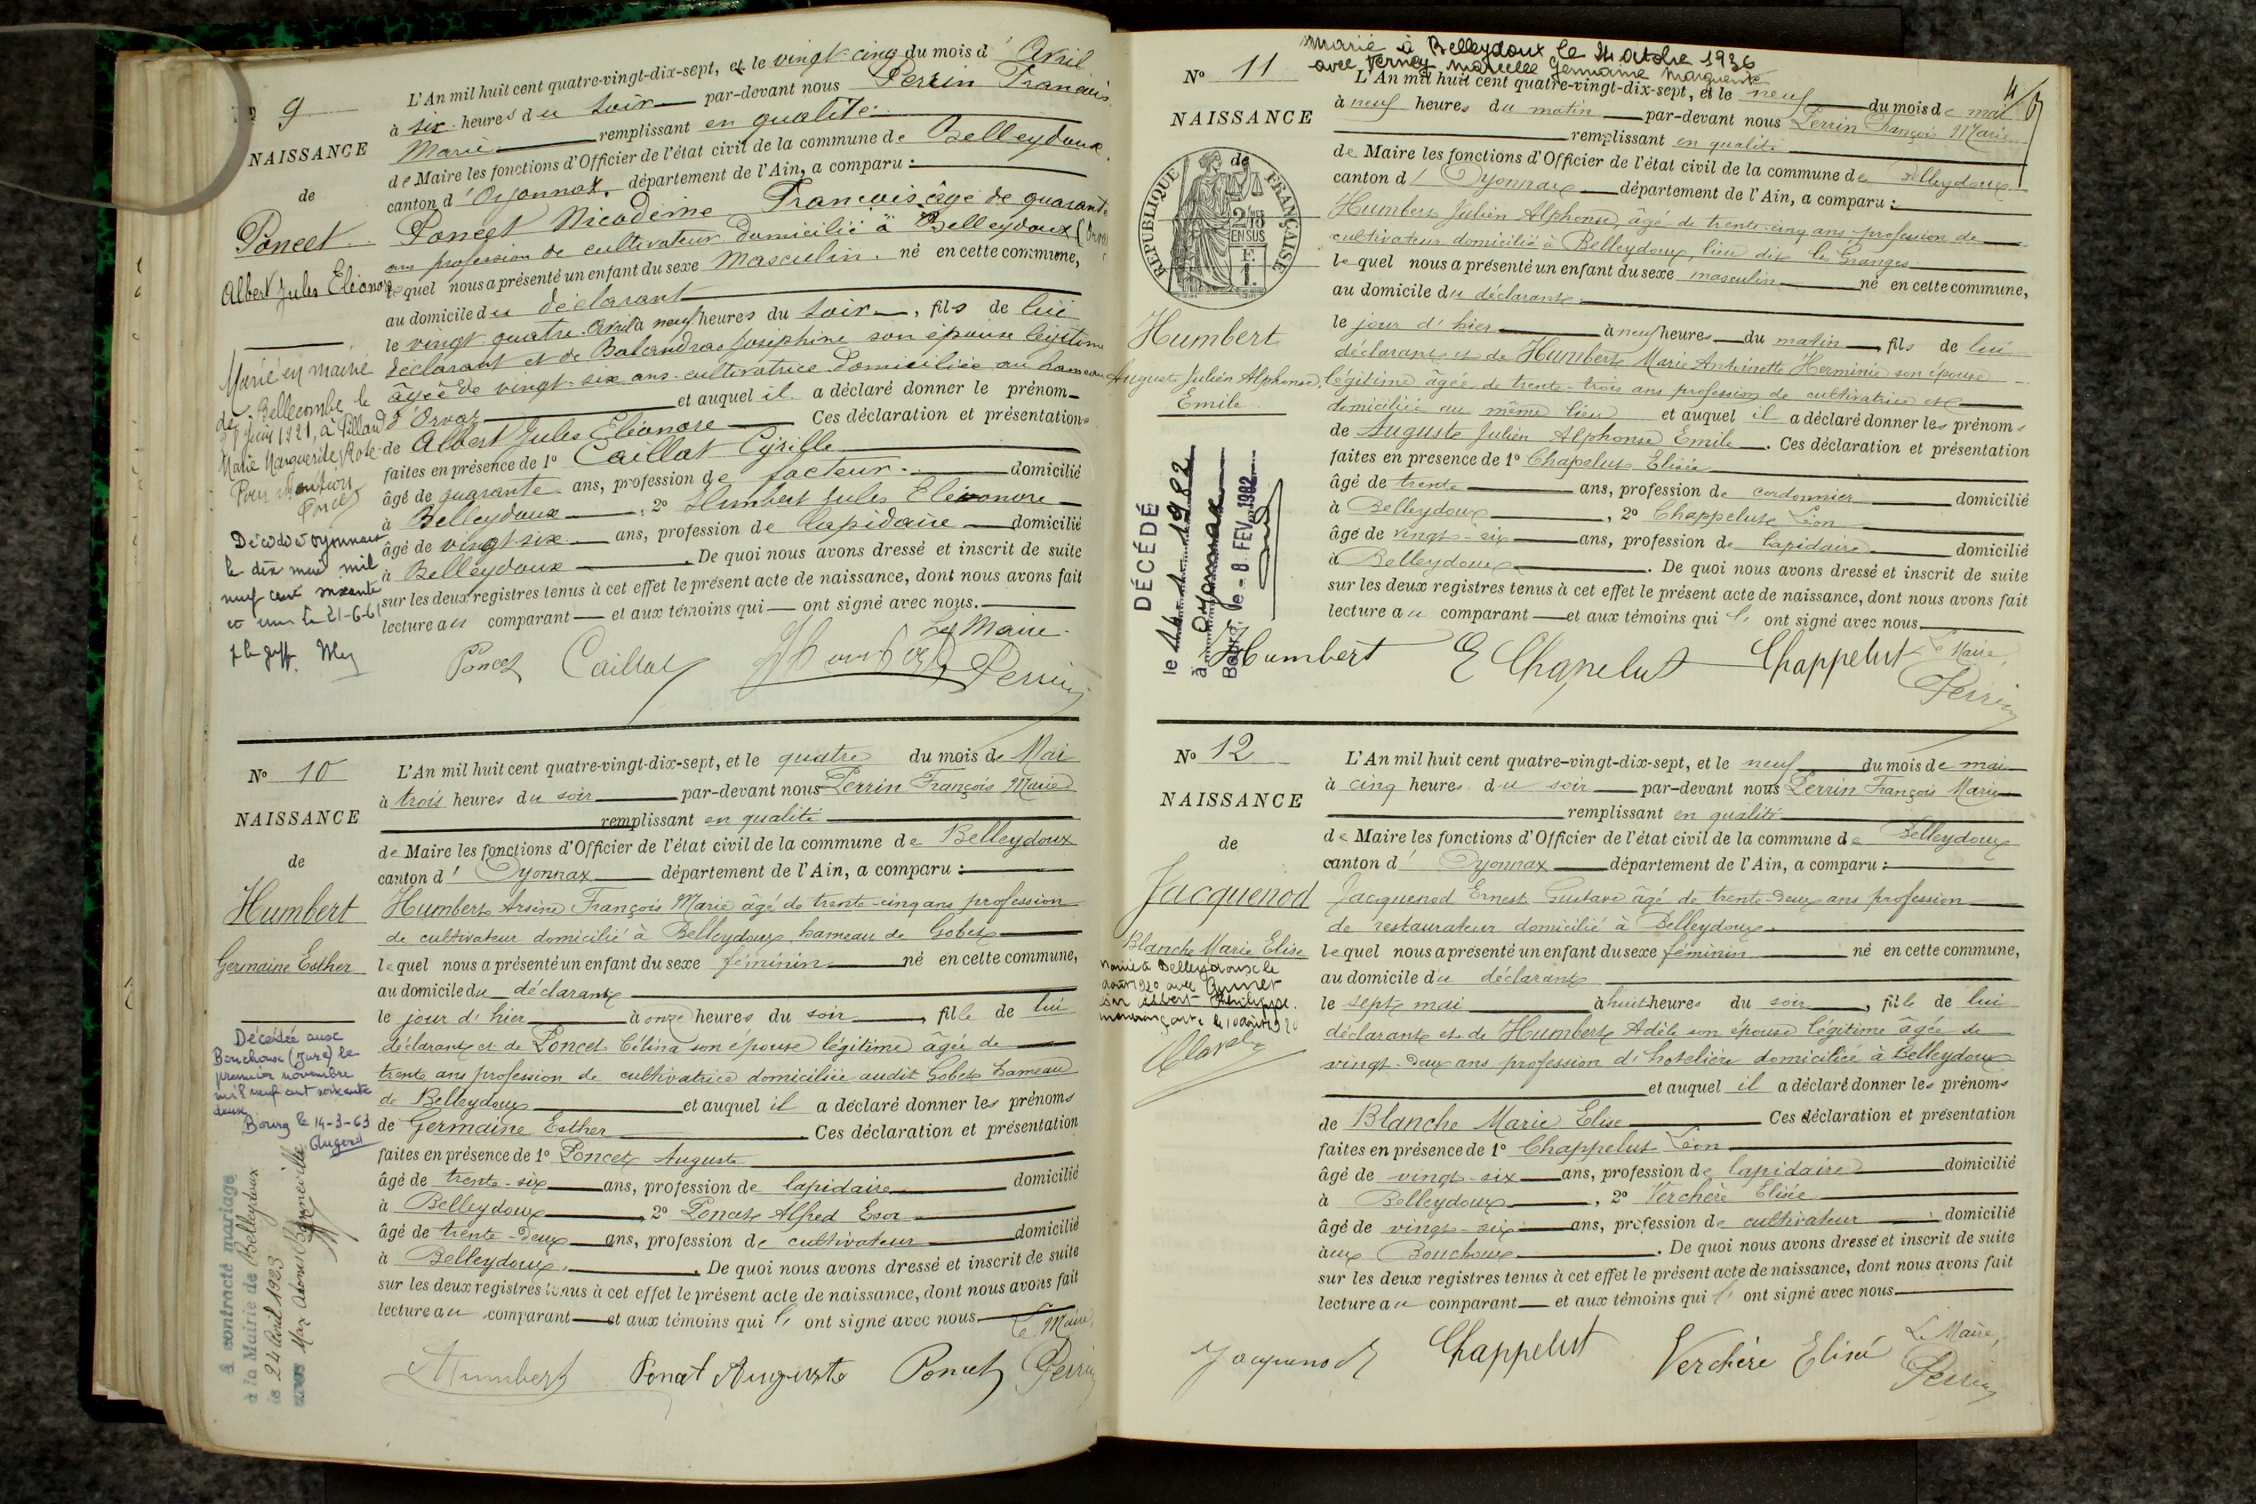 9
NAISSANCE
de
Poncet
Albert Jules Eléonore
Marié en mairie
de Bellecombe le
Juin 1921, à
Marie Marguerite Rose
Pour mention
Poncet
Décédé à Oyonnax
le dix mai mil
neuf cent soixante
21-6-61
L'An mil huit cent quatre-vingt-dix-sept, et le vingt-cinq du mois d' Avril
à six heures du soir par-devant nous Perrin François
Marie remplissant en qualité
de Maire les fonctions d'Officier de l'état civil de la commune de Belleydoux
canton d'Oyonnax, département de l'Ain, a comparu :
Poncet Nicodème François âgé de quarante
ans profession de cultivateur domicilié à Belleydoux
lequel nous a présenté un enfant du sexe Masculin né en cette commune,
au domicile du déclarant
le vingt quatre Avril à neuf heures du soir, fils de lui
déclarant et de Joséphine son épouse légitime
âgée de vingt-six ans cultivatrice domiciliée au hameau
d'Orvaz et auquel il a déclaré donner le prénom
de Albert Jules Eléonore Ces déclaration et présentation
faites en présence de 1º Caillat Cyrille
âgé de quarante ans, profession de facteur domicilié
à Belleydoux, 2º Humbert Jules Eléonore
âgé de vingt six ans, profession de lapidaire domicilié
à Belleydoux. De quoi nous avons dressé et inscrit de suite
sur les deux registres tenus à cet effet le présent acte de naissance, dont nous avons fait
lecture au comparant et aux témoins qui ont signé avec nous.
Le Maire
Poncet Caillat Humbert Perrin
Nº 10
NAISSANCE
de
Humbert
Germaine Esther
Décédée aux
Bouchoux (Jura) le
premier novembre
mil neuf cent soixante
deux
Bourg le 14-3-63
A contracté mariage
à la Mairie de Belleydoux
le 24 Avril 1923
avec Max
L'An mil huit cent quatre-vingt-dix-sept, et le quatre du mois de Mai
à trois heures du soir par-devant nous Perrin François Marie
remplissant en qualité
de Maire les fonctions d'Officier de l'état civil de la commune de Belleydoux
canton d' Oyonnax département de l'Ain, a comparu :
Humbert Arsène François Marie âgé de trente-cinq ans profession
de cultivateur domicilié à Belleydoux hameau de Gobet
lequel nous a présenté un enfant du sexe féminin né en cette commune,
au domicile du déclarant
le jour d'hier à onze heures du soir, fille de lui
déclarant et de Poncet Célina son épouse légitime âgée de
trente ans profession de cultivatrice domiciliée audit Gobet hameau
de Belleydoux et auquel il a déclaré donner les prénoms
de Germaine Esther. Ces déclaration et présentation
faites en présence de 1º Poncet Auguste
âgé de trente-six ans, profession de lapidaire domicilié
à Belleydoux, 2º Poncet Alfred
âgé de trente-deux ans, profession de cultivateur domicilié
à Belleydoux. De quoi nous avons dressé et inscrit de suite
sur les deux registres tenus à cet effet le présent acte de naissance, dont nous avons fait
lecture au comparant et aux témoins qui l' ont signé avec nous
Le Maire,
Humbert Poncet Auguste Poncet Perrin
marié à Belleydoux le octobre 1936
avec Verney Marcelle Germaine Marguerite
Nº 11
NAISSANCE
de
RÉPUBLIQUE FRANÇAISE
Humbert
Auguste Julien Alphonse
Emile
DÉCÉDÉ
le 1982
à Oyonnax
Bourg, le - 8. FEV. 1982
L'An mil huit cent quatre-vingt-dix-sept, et le neuf du mois de mai
à neuf heures du matin par-devant nous Perrin François Marie
remplissant en qualité
de Maire les fonctions d'Officier de l'état civil de la commune de Belleydoux
canton d' Oyonnax département de l'Ain, a comparu :
Humbert Julien Alphonse, âgé de trente-cinq ans profession de
cultivateur domicilié à Belleydoux, lieu dit les Granges
lequel nous a présenté un enfant du sexe masculin né en cette commune,
au domicile du déclarant
le jour d'hier à neuf heures du matin, fils de lui
déclarant et de Humbert Marie Antoinette Herminie son épouse
légitime âgée de trente-trois ans profession de cultivatrice et
domiciliée au même lieu et auquel il a déclaré donner les prénoms
de Auguste Julien Alphonse Emile. Ces déclaration et présentation
faites en présence de 1º Chapelut Elisée
âgé de trente ans, profession de cordonnier domicilié
à Belleydoux, 2º Chappelut Léon
âgé de vingt-six ans, profession de lapidaire domicilié
à Belleydoux. De quoi nous avons dressé et inscrit de suite
sur les deux registres tenus à cet effet le présent acte de naissance, dont nous avons fait
lecture au comparant et aux témoins qui l' ont signé avec nous
Le Maire,
Humbert E Chapelut Chappelut Perrin
Nº 12
NAISSANCE
de
Jacquenod
Blanche Marie Elise
marié à Belleydoux le
août 1920 avec
Albert Philippe
le 10 août 1920
L'An mil huit cent quatre-vingt-dix-sept, et le neuf du mois de mai
à cinq heures du soir par-devant nous Perrin François Marie
remplissant en qualité
de Maire les fonctions d'Officier de l'état civil de la commune de Belleydoux
canton d' Oyonnax département de l'Ain, a comparu :
Jacquenod Ernest Gustave âgé de trente-deux ans profession
de restaurateur domicilié à Belleydoux
lequel nous a présenté un enfant du sexe féminin né en cette commune,
au domicile du déclarant
le sept mai à huit heures du soir, fille de lui
déclarant et de Humbert Adèle son épouse légitime âgée de
vingt-deux ans profession d'hotelière domiciliée à Belleydoux
et auquel il a déclaré donner les prénoms
de Blanche Marie Elise Ces déclaration et présentation
faites en présence de 1º Chappelut Léon
âgé de vingt-six ans, profession de lapidaire domicilié
à Belleydoux, 2º Verchère Elisée
âgé de vingt-six ans, profession de cultivateur domicilié
aux Bouchoux. De quoi nous avons dressé et inscrit de suite
sur les deux registres tenus à cet effet le présent acte de naissance, dont nous avons fait
lecture au comparant et aux témoins qui l' ont signé avec nous
Le Maire,
Jacquenod Chappelut Verchère Elisé Perrin